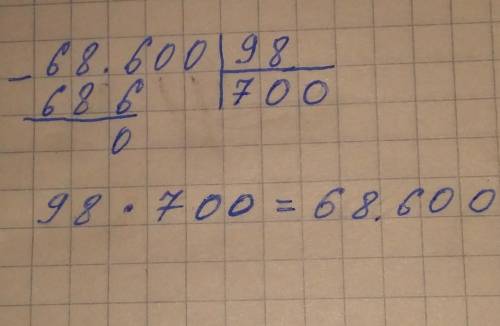 - 68.600 | 98
686 | 700
0
98 · 700 = 68.600